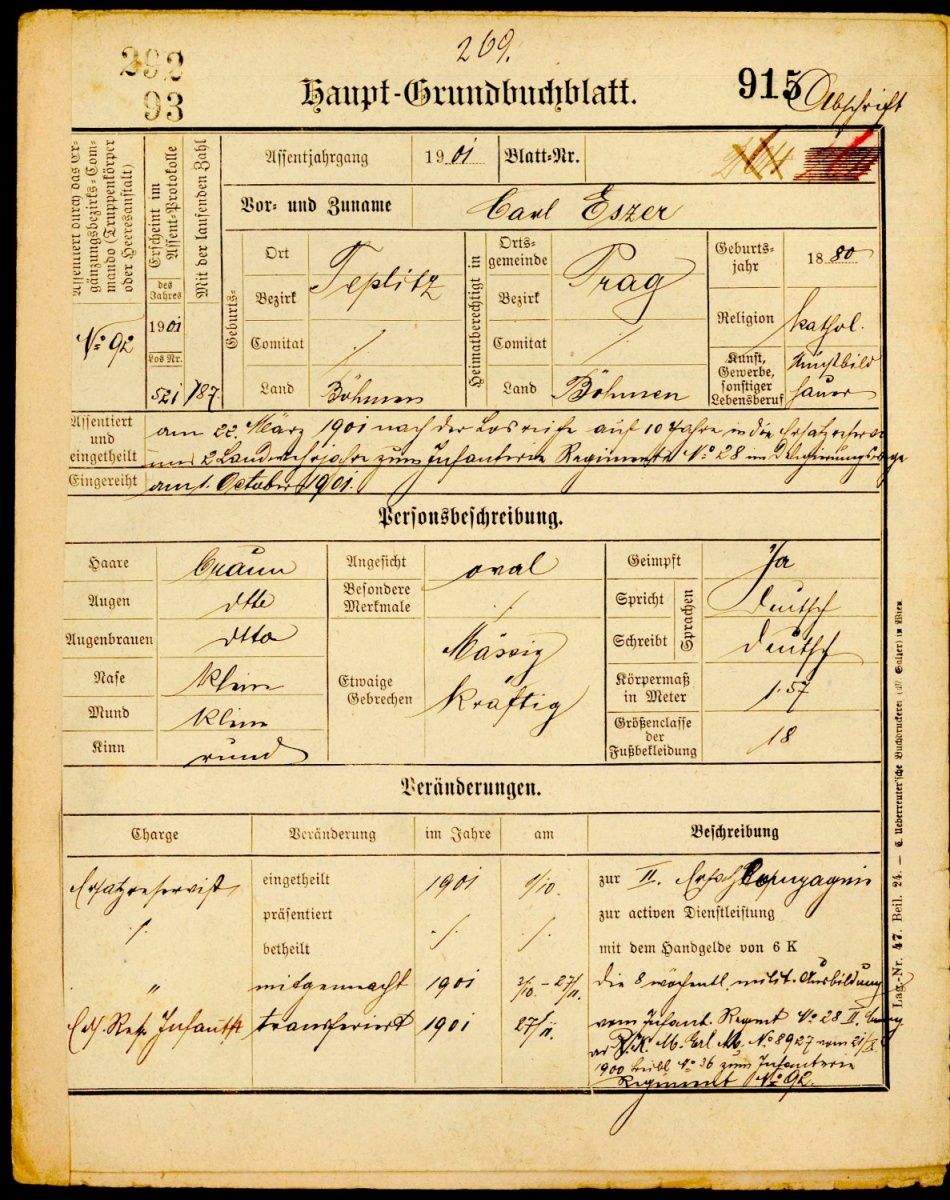 269.
292
93
Haupt-Grundbuchblatt.
915
Abschrift
Assentiert durch das Ergänzungsbezirks-Commando (Truppenkörper oder Heeresanstalt)
No 92
Erscheint im Assent-Protokolle
des Jahres
1901
Los Nr.
521
Mit der laufenden Zahl
187.
Assentjahrgang 1901 Blatt-Nr.
Vor- und Zuname Carl Eszer
Geburts-
Ort
Bezirk
Teplitz
Comitat ./.
Land Böhmen
Heimatberechtigt in
Ortsgemeinde
Bezirk
Prag
Comitat ./.
Land Böhmen
Geburtsjahr 1880
Religion kathol.
Kunst, Gewerbe, sonstiger Lebensberuf
Kunstbild
hauer
Assentiert und eingetheilt
am 22. März 1901 nach der Losreihe auf 10 Jahre in die Ersatzreserve
und 2 Landwehrjahre zum Infanterie Regimente No 28 im
Eingereiht am 1. October 1901.
Personsbeschreibung.
Haare braun
Augen dtto
Augenbrauen dtto
Nase klein
Mund klein
Kinn rund
Angesicht oval
Besondere Merkmale ./.
Etwaige Gebrechen
Mässig
kräftig
Geimpft Ja
Sprachen
Spricht deutsch
Schreibt deutsch
Körpermaß in Meter 1·57
Größenclasse der Fußbekleidung 18
Veränderungen.
Charge Veränderung im Jahre am Beschreibung
Ersatzreservist eingetheilt 1901 1/10. zur II. Ersatz Compagnie
./. präsentiert ./. ./. zur activen Dienstleistung
betheilt mit dem Handgelde von 6 K
" mitgemacht 1901 3/10. – 27/11. die 8 wöchentl. milit. Ausbildung
Ers. Res. Infantst transferiert 1901 27/11. vom Infant. Regmt No 28
No 8927 vom
1900 No 36 zum Infanterie
Regiment No 92.
Lag.-Nr. 47. Beil. 24. — C. Ueberreuter'sche Buchdruckerei (M. Salzer) in Wien.